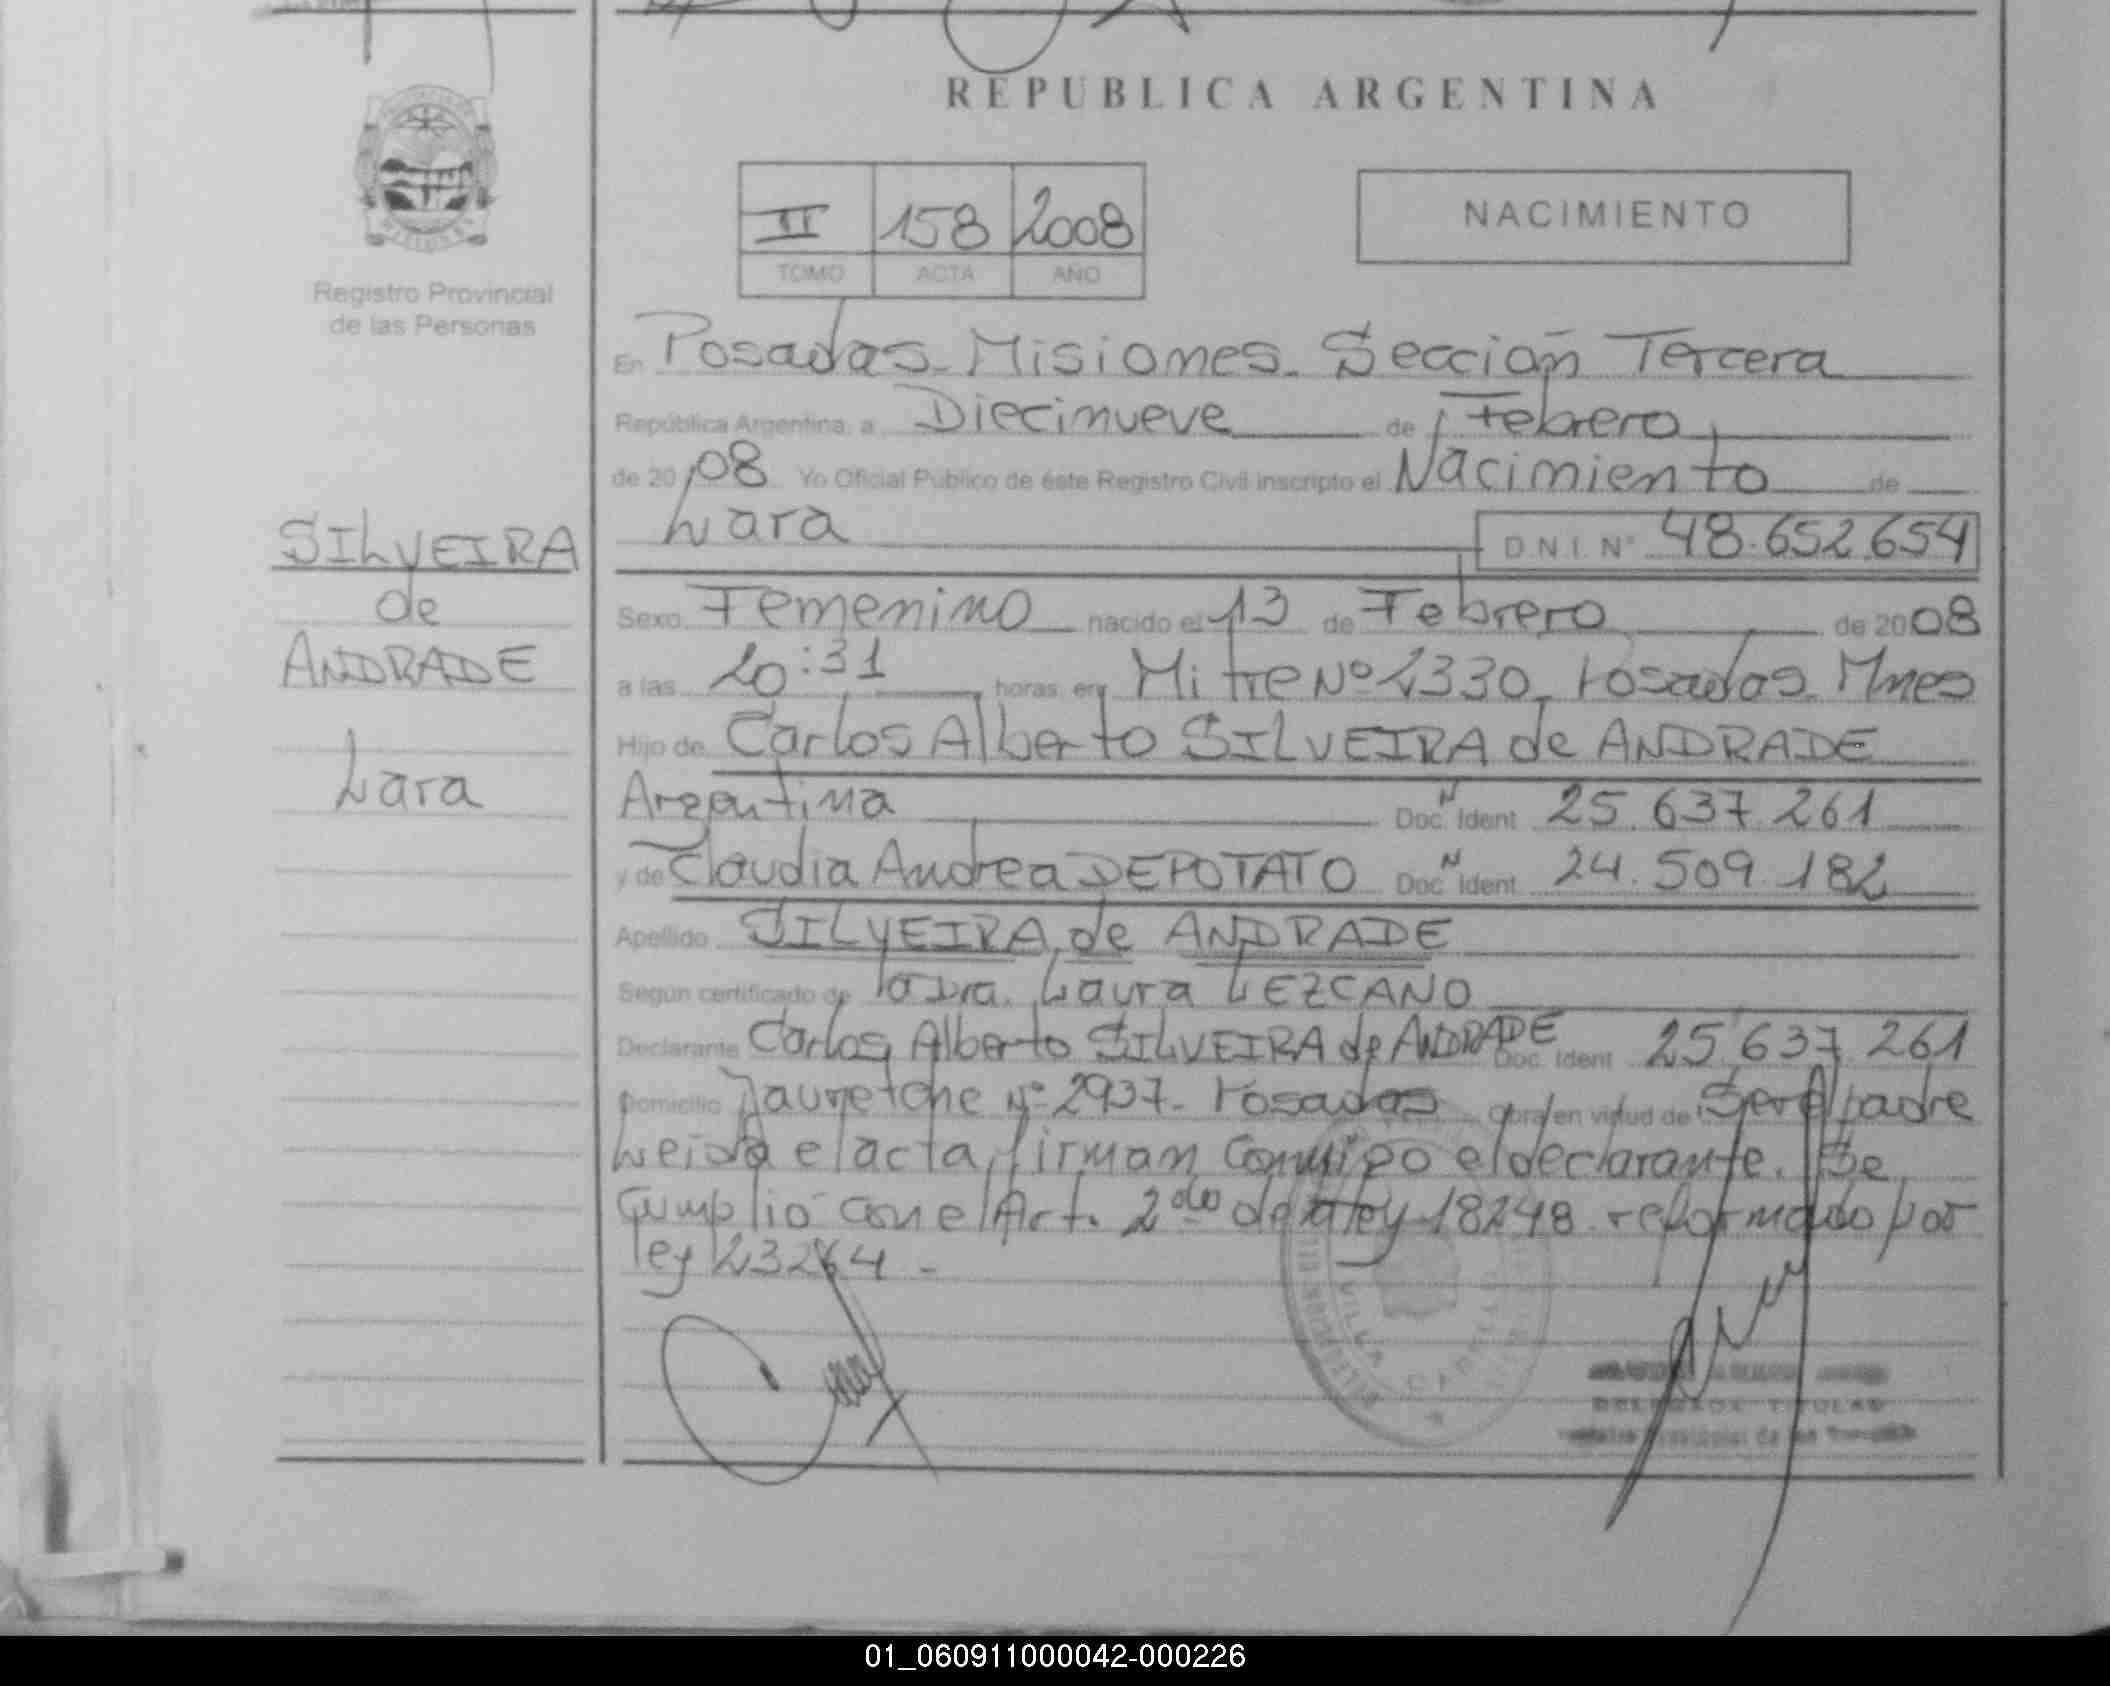 REPUBLICA ARGENTINA
II 158 2008
TOMO ACTA AÑO
NACIMIENTO
Registro Provincial
de las Personas
SILVEIRA
de
ANDRADE
Lara
En Posadas Misiones. Sección Tercera
República Argentina, a Diecinueve de Febrero
de 20 08 Yo Oficial Público de éste Registro Civil inscripto el Nacimiento de
Lara D.N.I. Nº 48.652.654
Sexo Femenino nacido el 13 de Febrero de 20 08
a las 20:31 horas en Mitre Nº 2330, Posadas. Mnes
Hijo de Carlos Alberto SILVEIRA de ANDRADE
Argentina Doc. Ident 25.637.261
y de Claudia Andrea DEPOTATO Doc. Ident 24.509.182
Apellido SILVEIRA de ANDRADE
Según certificado de la Dra. Laura LEZCANO
Declarante Carlos Alberto SILVEIRA de ANDRADE Doc. Ident 25.637.261
Domicilio Jauretche Nº 2937- Posadas Obra en virtud de Ser el padre
Leida el acta, firman Conmigo el declarante. Se
Cumplió con el Art. 2do de la ley 18248 reformado por
ley 23264 -
DELEGADA TITULAR
01_060911000042-000226